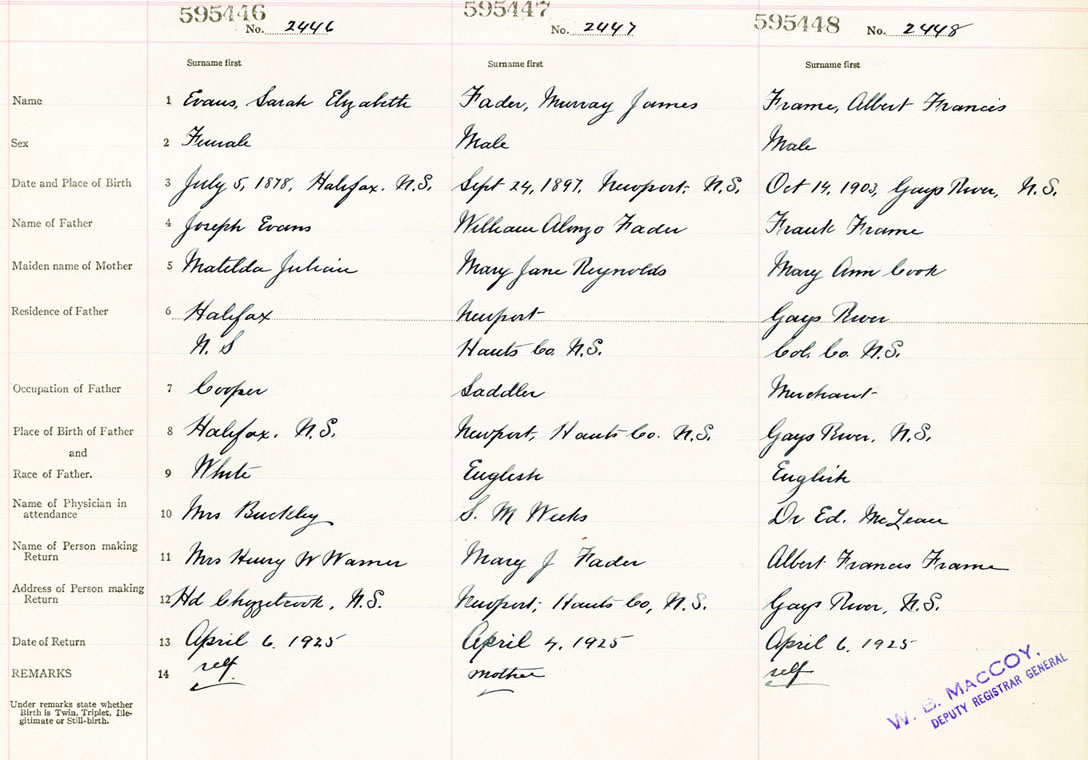 595446 No. 2446 595447 No. 2447 595448 No. 2448
Surname first Surname first Surname first
Name 1 Evans, Sarah Elizabeth Fader, Murray James Frame, Albert Francis
Sex 2 Female Male Male
Date and Place of Birth 3 July 5, 1878, Halifax. N.S. Sept 24, 1897, Newport, N.S. Oct 14, 1903, Gays River, N.S.
Name of Father 4 Joseph Evans William Alonzo Fader Frank Frame
Maiden name of Mother 5 Matilda Julian Mary Jane Reynolds Mary Ann Cook
Residence of Father 6 Halifax Newport Gays River
N.S Hants Co. N.S. Col. Co. N.S.
Occupation of Father 7 Cooper Saddler Merchant
Place of Birth of Father 8 Halifax. N.S. Newport, Hants Co. N.S. Gays River, N.S.
and
Race of Father. 9 White English English
Name of Physician in
attendance 10 Mrs Buckley S. M Weeks Dr Ed. McLean
Name of Person making
Return 11 Mrs Henry W Warner Mary J Fader Albert Francis Frame
Address of Person making
Return 12 Hd Chezzetcook, N.S. Newport, Hants Co, N.S. Gays River, N.S.
Date of Return 13 April 6, 1925 April 4, 1925 April 6, 1925
REMARKS 14 self mother self
Under remarks state whether
Birth is Twin, Triplet, Ille-
gitimate or Still-birth.
W. B. MACCOY,
DEPUTY REGISTRAR GENERAL